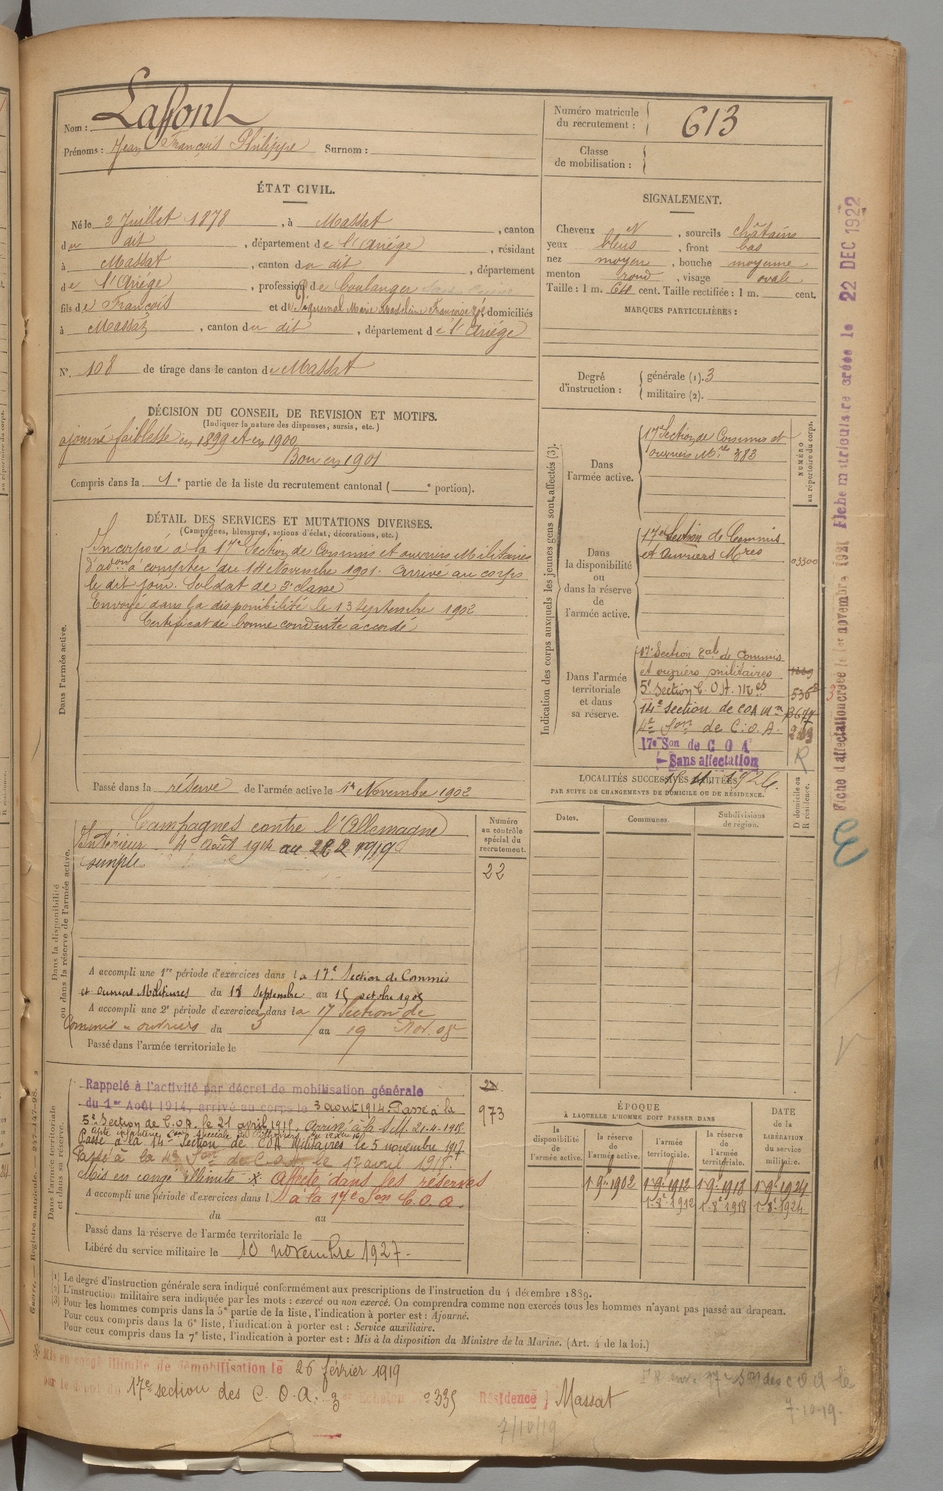 Nom : Laffont
Prénoms : Jean François Philippe Surnom :
Numéro matricule du recrutement : 613
Classe de mobilisation :
ÉTAT CIVIL.
Né le 2 Juillet 1878, à Massat, canton
du dit, département de l'Ariége, résidant
à Massat, canton du dit, département
de l'Ariége, profession de boulanger
fils de François et de Marie Madeleine Françoise domiciliés
à Massat, canton du dit, département de l'Ariége
N° 108 de tirage dans le canton de Massat
SIGNALEMENT.
Cheveux N, sourcils châtains
yeux bleus, front bas
nez moyen, bouche moyenne
menton rond, visage ovale
Taille : 1 m. 64 cent. Taille rectifiée : 1 m. cent.
MARQUES PARTICULIÈRES :
Degré d'instruction : générale (1). 3
militaire (2).
DÉCISION DU CONSEIL DE REVISION ET MOTIFS.
(Indiquer la nature des dispenses, sursis, etc.)
ajourné faiblesse en 1899 et en 1900
Bon en 1901
Compris dans la 1e partie de la liste du recrutement cantonal ( e portion).
DÉTAIL DES SERVICES ET MUTATIONS DIVERSES.
(Campagnes, blessures, actions d'éclat, décorations, etc.)
Dans l'armée active.
Incorporé à la 17e Section de Commis et ouvriers Militaires
d'adon à compter du 14 Novembre 1901. Arrivé au corps
le dit jour. Soldat de 2e classe
Envoyé dans la disponibilité le 13 Septembre 1902
Certificat de bonne conduite accordé
Passé dans la réserve de l'armée active le 1er Novembre 1902
Indication des corps auxquels les jeunes gens sont affectés (3).
NUMÉRO au répertoire du corps.
Dans l'armée active.
17e Section de Commis et
ouvriers Mres 383
Dans la disponibilité ou dans la réserve de l'armée active.
17e Section de Commis
et Ouvriers Mres
03300
Dans l'armée territoriale et dans sa réserve.
17e Section tale de Commis
et ouvriers militaires
5e Section C.O.A. Mres
14e Section de COA Mres
4e Son de C.O.A.
17e Son de C O A
Sans affectation
R
LOCALITÉS SUCCESSIVES HABITÉES
PAR SUITE DE CHANGEMENTS DE DOMICILE OU DE RÉSIDENCE.
Dates. Communes. Subdivisions de région. D domicile ou R résidence.
Dans la disponibilité ou dans la réserve de l'armée active.
Campagnes contre l'Allemagne
Intérieur 4 Août 1914 au 1919
simple
Numéro au contrôle spécial du recrutement.
22
A accompli une 1re période d'exercices dans la 17e Section de Commis
et Ouvriers Militaires du 18 Septembre au 15 octobre 1905
A accompli une 2e période d'exercices dans la 17 Section de
Commis et ouvriers du 3 au 19 Nov. 08
Passé dans l'armée territoriale le
Dans l'armée territoriale et dans sa réserve.
Rappelé à l'activité par décret de mobilisation générale
du 1er Août 1914, arrivé au corps le 3 aout 1914. Passé à la
5e Section de C.O.A. le 21 avril 1915. Arrivé à la S.M. 21-4-1915.
Passé à la 14e Section de COA Militaires le 5 novembre 1917.
Passé à la 4e Son de C.O.A. le 17 avril 1918.
Mis en congé illimité * Affecté dans les réserves
à la 17e Son C.O.A.
973
A accompli une période d'exercices dans l
du au
Passé dans la réserve de l'armée territoriale le
Libéré du service militaire le 10 novembre 1927.
ÉPOQUE
À LAQUELLE L'HOMME DOIT PASSER DANS
la disponibilité de l'armée active. la réserve de l'armée active. l'armée territoriale. la réserve de l'armée territoriale.
DATE de la LIBÉRATION du service militaire.
1-9-1902 1-9-1912 1-9-1918 1-9-1924
1-8-1912 1-8-1918 1-8-1924
(1) Le degré d'instruction générale sera indiqué conformément aux prescriptions de l'instruction du 4 décembre 1889.
(2) L'instruction militaire sera indiquée par les mots : exercé ou non exercé. On comprendra comme non exercés tous les hommes n'ayant pas passé au drapeau.
(3) Pour les hommes compris dans la 5e partie de la liste, l'indication à porter est : Ajourné.
Pour ceux compris dans la 6e liste, l'indication à porter est : Service auxiliaire.
Pour ceux compris dans la 7e liste, l'indication à porter est : Mis à la disposition du Ministre de la Marine. (Art. 4 de la loi.)
Mis en congé illimité de démobilisation le 26 février 1919
par le dépôt du 17e section des C.O.A. 3 Echelon n° 335 Résidence } Massat
7/10/19
7-10-19.
Fiche d'affectation créée le 1er novembre 1921 Fiche matriculaire créée le 22 DEC 1922